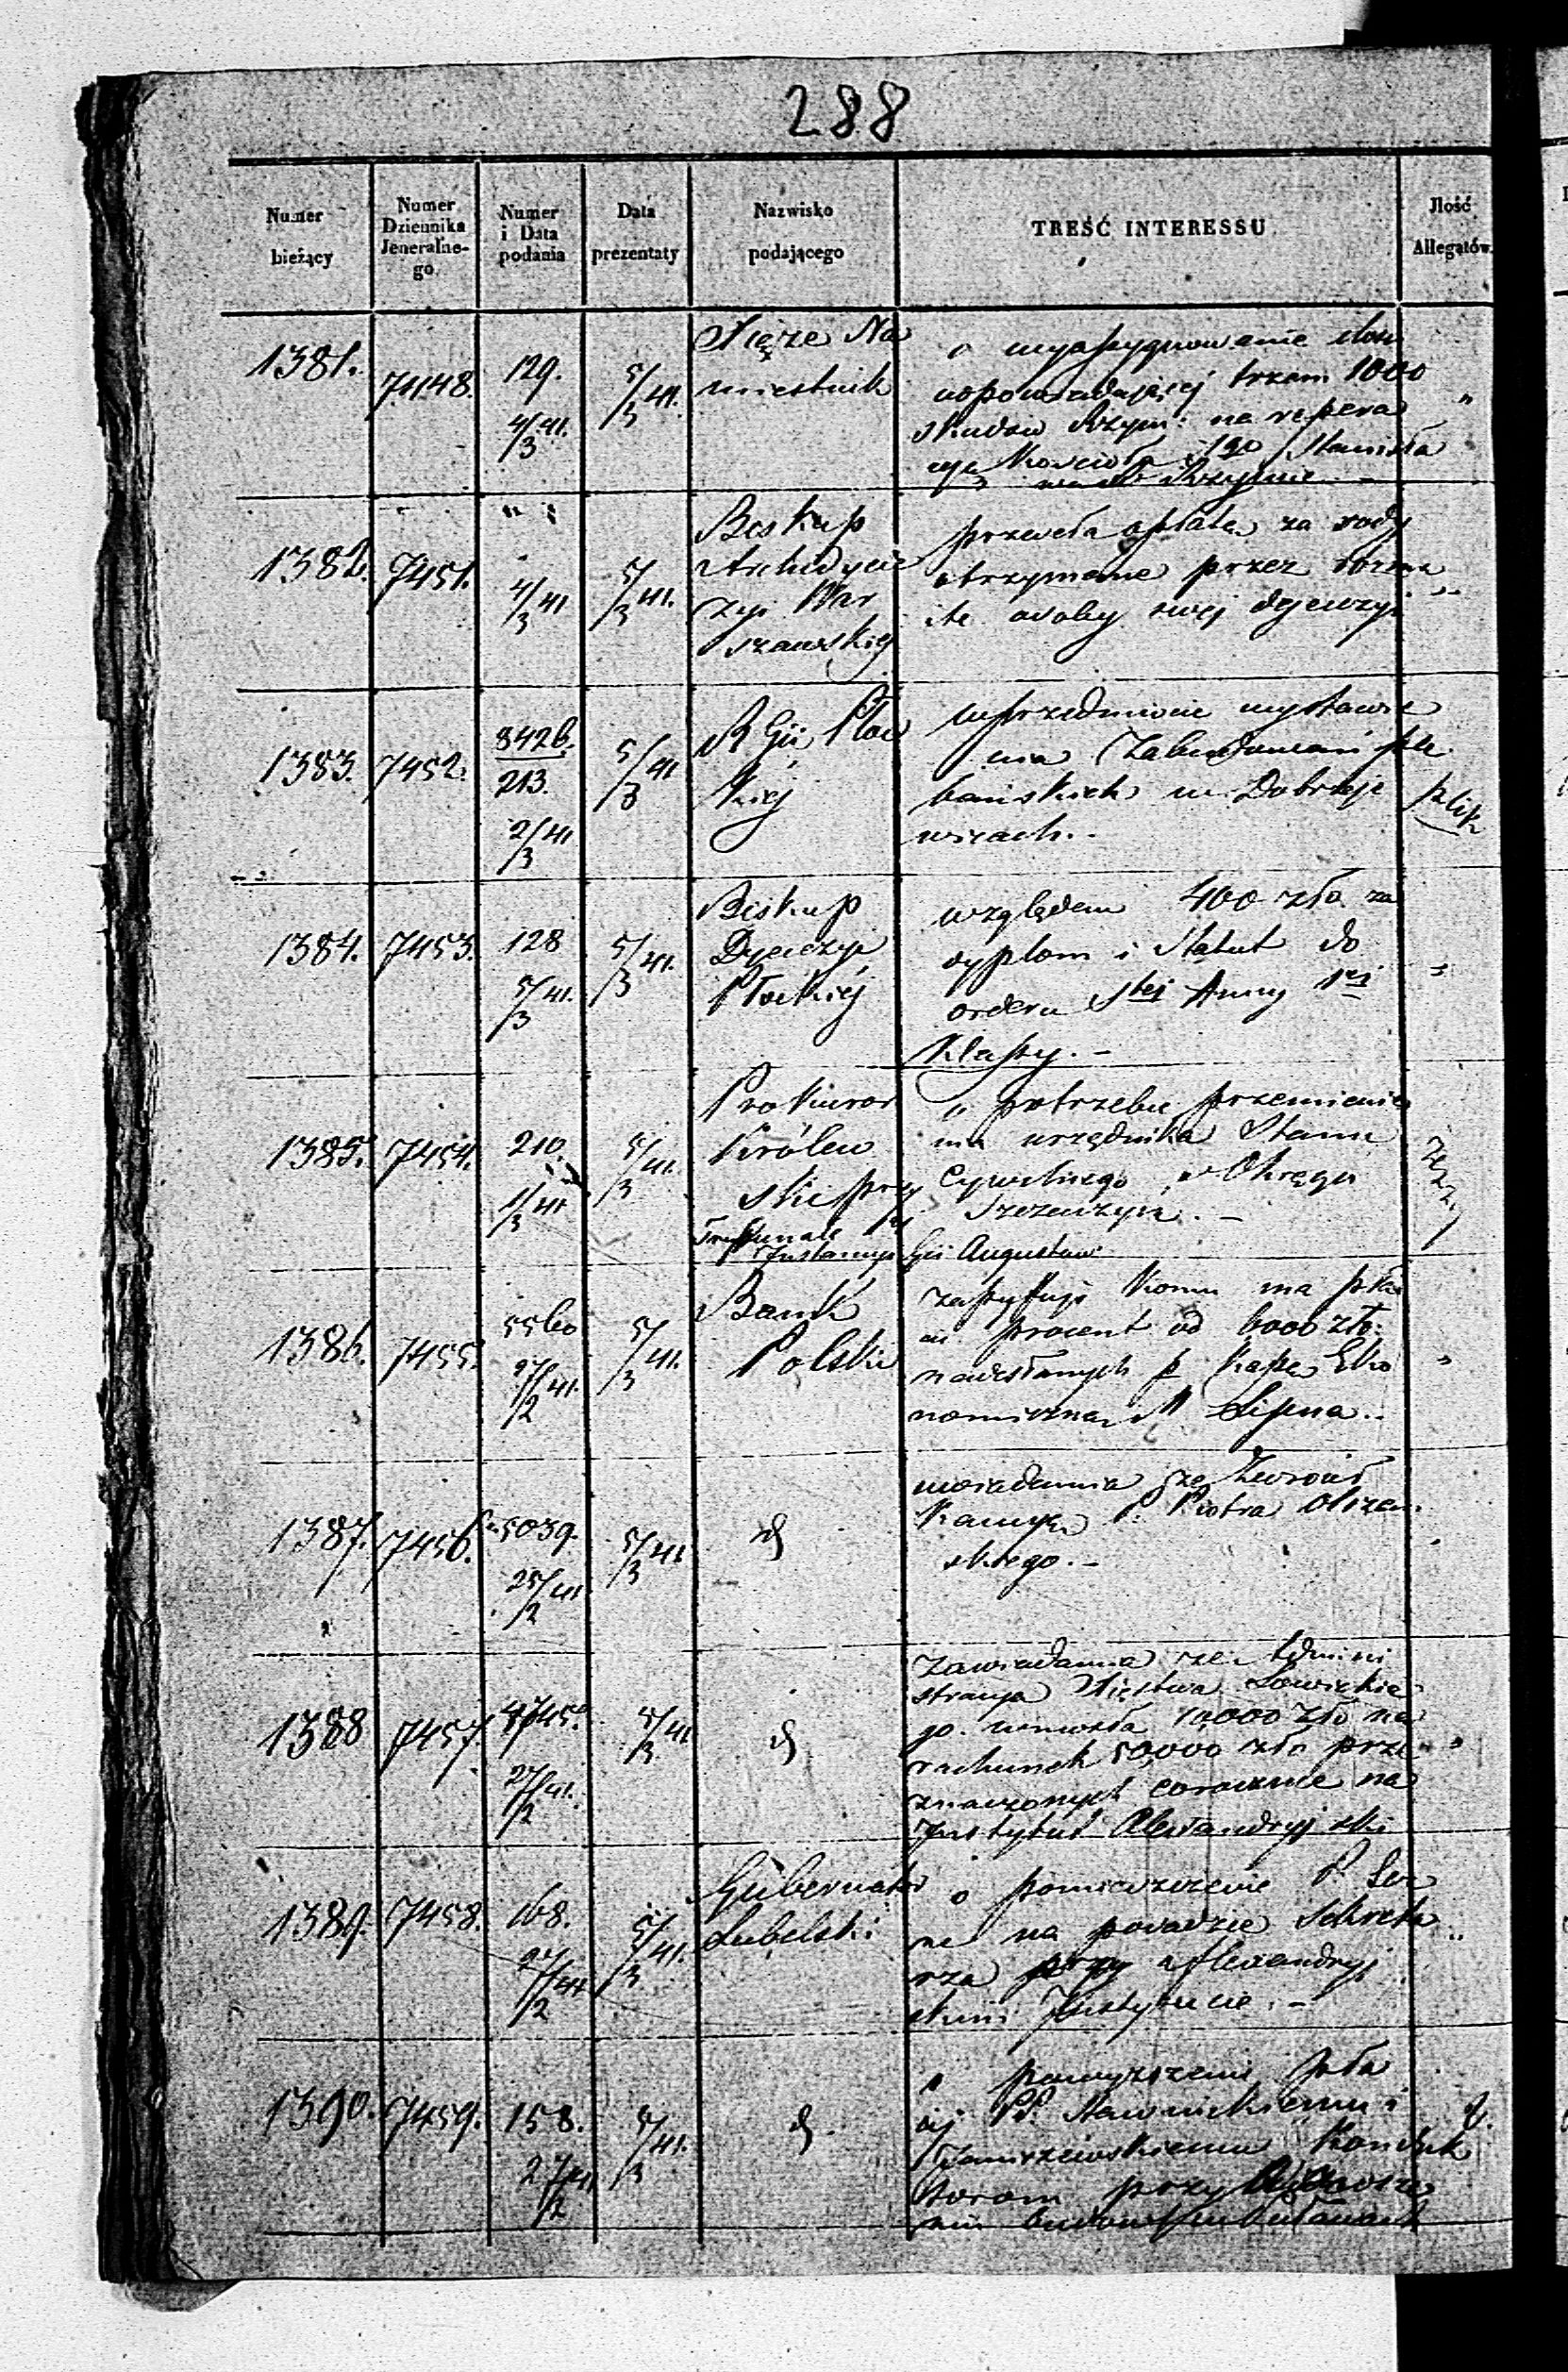 288
Numer bieżący
Numer Dziennika Jeneralne-go
Numer i Data podania
Data prezentaty
Nazwisko podającego
TREŚĆ INTERESSU
Jlość Allegatów
1381. 7448. 129. 4/3 41. 5/3 41.
Xiąże Na
miestnik
o wyassygnowanie ilości
odpowiadającej trzem 1000
Skudów Rzym: na repera
cyą Kościoła Sgo Stanisła
wa w Rzymie. "
1382. 7451. 4/3 41 5/3 41.
Biskup
Archidyece
zyi War
szawskiej
przesyła opłatę za
otrzymane przez rozma
ite osoby swej dyecezyi "
1383. 7452. 8426. 213. 2/3 41 5/3 41
R Gii Płoc
kiej
w przedmiocie wystawie
nia Zabudowań ple
bańskich w Dobrzeje
wicach. -
plik
1384. 7453. 128 5/3 41. 5/3 41.
Biskup
Dyecezyi
Płockiej
względem 400 zło za
dyplom i Statut do
orderu Stej Anny 1ej
Klassy. - "
1385. 7454. 210. 1/3 41 5/3 41.
Prokurator
Królew
ski przy
Trybunale
Instancyi Gii Augustow
o potrzebie przemienie
nia urzędnika Stanu
Cywilnego w Okręgu
Szczuczyń. -
1386. 7455. 5560 27/2 41. 5/3 41.
Bank
Polski
zapytuje komu ma płac
ić procent od 6000 zło:
nadesłanych p Kassę Eko
nomiczną M Lipna. - "
1387. 7456. 5039. 25/2 41 5/3 41
d
uwiadamia że zwrócił
Kaucyą P. Piotra Olszew
skiego. -
1388 7457. 27/2 41. 5/3 41
d
Zawiadamia że Admini
stracya Xięstwa Łowickie
go. wniosła 10,000 zło na
rachunek 50,000 zło prze
znaczonych corocznie na
Instytut Alexandryjski "
1389. 7458. 168. 27/2 41 5/3 41.
Gubernator
Lubelski
o pomieszczenie P.
na posadzie Sekreta
rza przy Alexandryj
skim Instytucie. - "
1390. 7459. 158. 27/2 41 5/3 41.
d.
o powyższeniu pła
cy PP. Sławnickiemu i
Konduk
torom przy